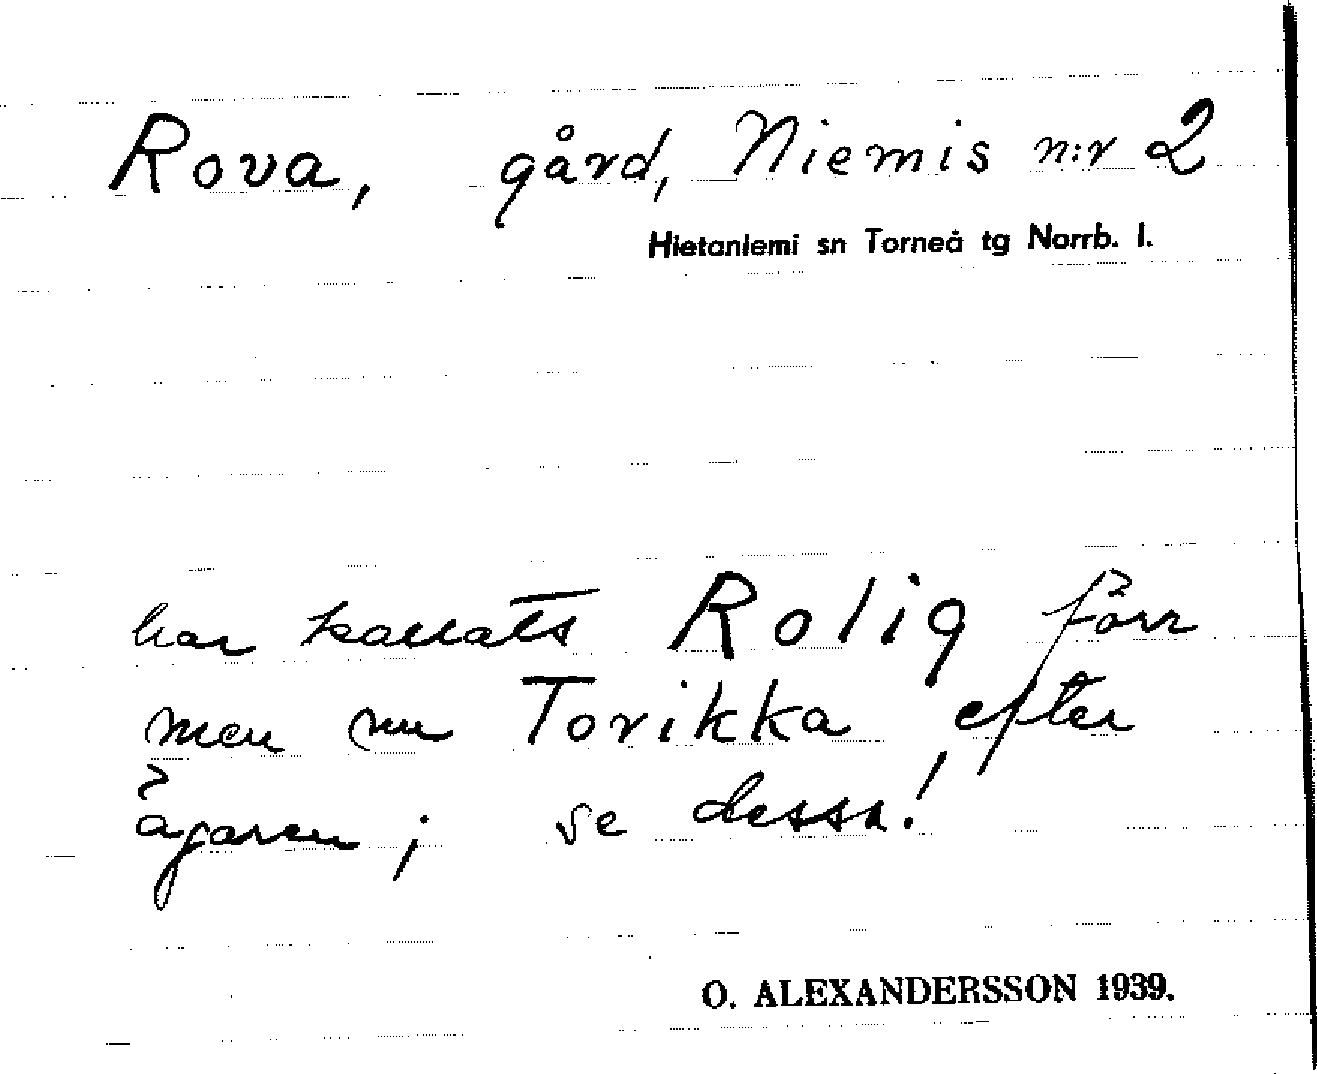 Rova, gård, Niemis n:r 2
Hietaniemi sn Torneå tg Norrb. l.
har kallats Rolig förr
men nu Torikka efter
ägaren; se dessa!
O. ALEXANDERSSON 1939.